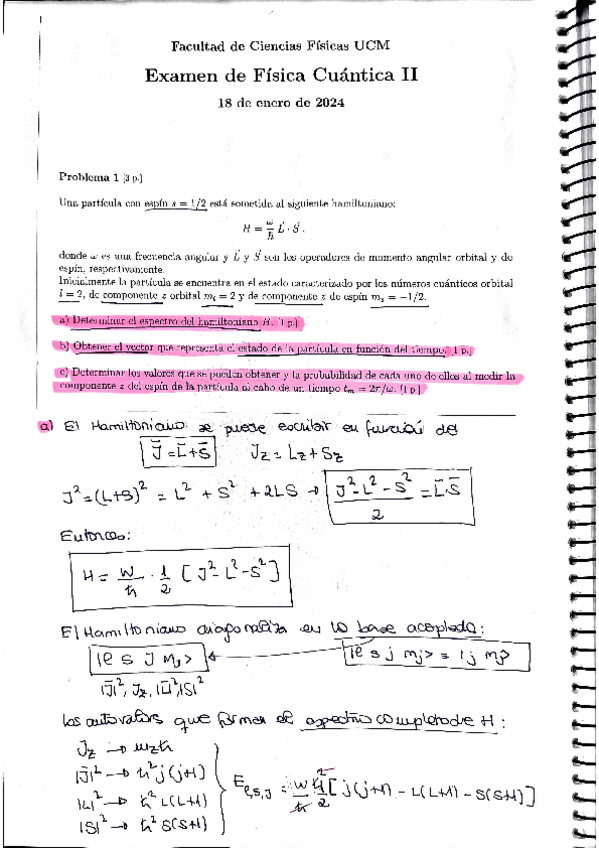 Facultad de Ciencias Físicas UCM
Examen de Física Cuántica II
18 de enero de 2024
Problema 1 [3 p.]
Una partícula con espín s = 1/2 está sometida al siguiente hamiltoniano:
H = ω/ħ L⃗ · S⃗ .
donde ω es una frecuencia angular y L⃗ y S⃗ son los operadores de momento angular orbital y de
espín, respectivamente.
Inicialmente la partícula se encuentra en el estado caracterizado por los números cuánticos orbital
l = 2, de componente z orbital mₗ = 2 y de componente z de espín mₛ = −1/2.
a) Determinar el espectro del hamiltoniano H. [1 p.]
b) Obtener el vector que representa el estado de la partícula en función del tiempo. [1 p.]
c) Determinar los valores que se pueden obtener y la probabilidad de cada uno de ellos al medir la
componente z del espín de la partícula al cabo de un tiempo tₘ = 2π/ω. [1 p.]
a) El Hamiltoniano se puede escribir en función del
J̄ = L̄ + S̄ Jz = Lz + Sz
J² = (L+S)² = L² + S² + 2LS → (J² - L² - S²)/2 = L̄·S̄
Entonces:
H = w/ħ · 1/2 [J² - L² - S²]
El Hamiltoniano diagonaliza en la base acoplada:
|l s J Mj> ← |l s j mj> = |j mj>
|J̄|², Jz, |L̄|², |S̄|²
los autovalores que forman el espectro completo de H:
Jz → mzħ
|J̄|² → ħ² j(j+1)
|L|² → ħ² L(L+1)
|S|² → ħ² S(S+1)
E l,s,J = w/ħ ħ²/2 [j(j+1) - L(L+1) - S(S+1)]